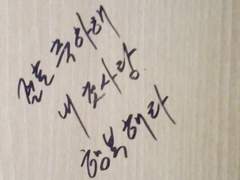 결혼 축하해
내 첫사랑
행복해라